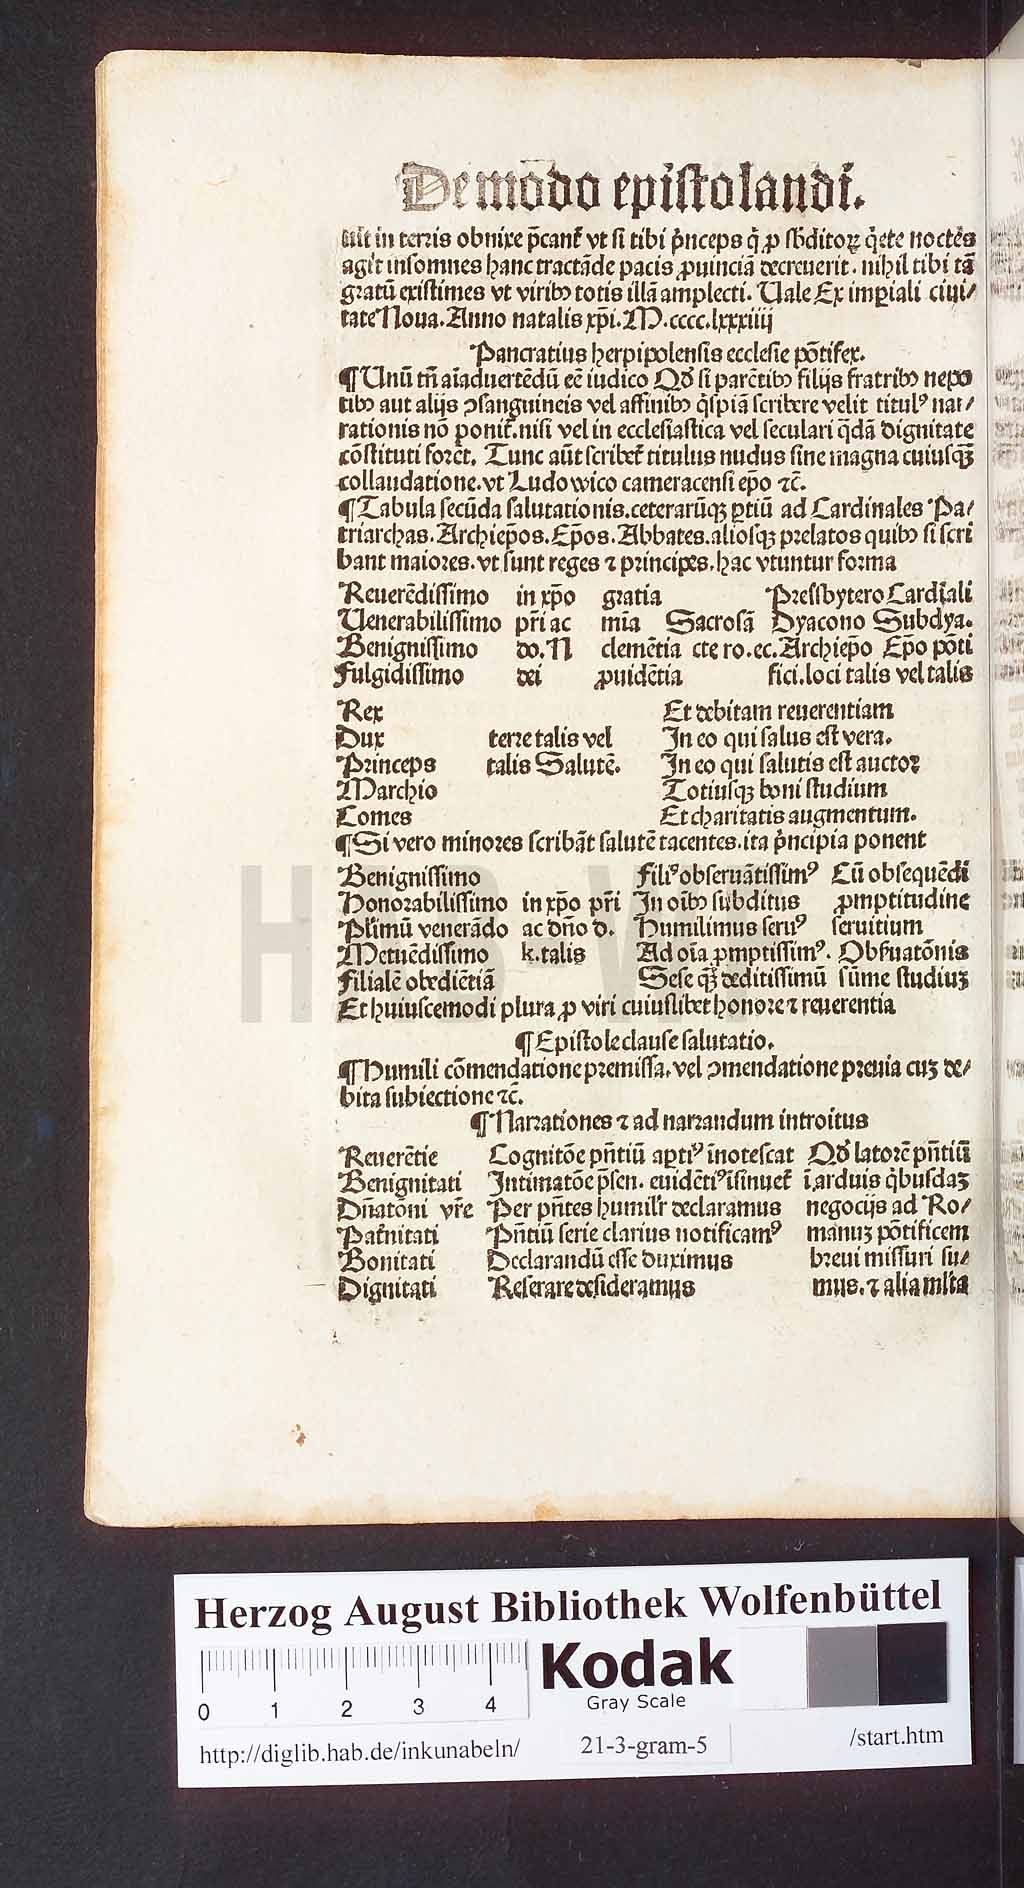 De modo epistolandi.
in terris obnixe p̄cant᷑ vt si tibi p̍nceps q̍ ꝓ sb̄ditoꝝ q̍ete noctēs
agit insomnes hanc tractāde pacis ꝓuinciā decreuerit. nihil tibi tā
gratū existimes vt viribꝰ totis illā amplecti. Uale Ex imꝑiali ciui⸗
tate Noua. Anno natalis xp̄i. M.cccc.lxxxiiij
Pancratius herpipolensis ecclesie pōtifex.
¶ Unū tn̄ aīaduertēdū eē iudico Qd̓ si parētibꝰ filijs fratribꝰ nepo
tibꝰ aut alijs ↄsanguineis vel affinibꝰ q̍spiā scribere velit titulꝰ nar⸗
rationis nō ponit᷑. nisi vel in ecclesiastica vel seculari q̄dā dignitate
cōstituti forēt. Tunc aūt scribet᷑ titulus nudus sine magna cuiusqꝫ
collaudatione. vt Ludowico cameracensi ep̄o ⁊c̄.
¶ Tabula secūda salutationis. ceterarūqꝫ ꝑtiū ad Cardinales Pa⸗
triarchas. Archiep̄os. Ep̄os. Abbates. aliosqꝫ prelatos quibꝰ si scri
bant maiores. vt sunt reges ⁊ principes. hac vtuntur forma
Reuerēdissimo in xp̄o gratia Pressbytero Cardīali
Uenerabilissimo pr̄i ac mīa Sacrosā Dyacono Subdya.
Benignissimo do. N clemētia cte ro. ec. Archiep̄o Ep̄o pōti
Fulgidissimo dei ꝓuidētia fici. loci talis vel talis
Rex Et debitam reuerentiam
Dux terre talis vel In eo qui salus est vera.
Princeps talis Salutē. In eo qui salutis est auctor
Marchio Totiusqꝫ boni studium
Comes Et charitatis augmentum.
¶ Si vero minores scribāt salutē tacentes. ita p̍ncipia ponent
Benignissimo filiꝰ obseruātissimꝰ Cū obsequēdi
Honorabilissimo in xp̄o pr̄i In oībꝰ subditus ꝓmptitudine
Pl̓imū venerādo ac dn̄o d. Humilimus seruꝰ seruitium
Metuēdissimo k. talis Ad oīa ꝓmptissimꝰ. Obẜuatōnis
Filialē obediētiā Sese qꝫ deditissimū sūme studiuꝫ
Et huiuscemodi plura ꝓ viri cuiuslibet honore ⁊ reuerentia
¶ Epistole clause salutatio.
¶ Humili cōmendatione premissa. vel ↄmendatione preuia cuꝫ de⸗
bita subiectione ⁊c̄.
¶ Narrationes ⁊ ad narrandum introitus
Reuerētie Cognitōe pn̄tiū aꝑtiꝰ īnotescat Qd̓ latorē pn̄tiū
Benignitati Intimatōe p̄sen. euidētiꝰ īsinuet᷑ ī arduis q̍busdaꝫ
Dn̄atōni vr̄e Per pn̄tes humilr̓ declaramus negocijs ad Ro⸗
Pat̓nitati Pn̄tiū serie clarius notificamꝰ manuꝫ pōtificem
Bonitati Declarandū esse duximus breui missuri su⸗
Dignitati Reserare desideramus mus. ⁊ alia ml̓ta
HAB-W
Herzog August Bibliothek Wolfenbüttel
Kodak
Gray Scale
0 1 2 3 4
http://diglib.hab.de/inkunabeln/ 21-3-gram-5 /start.htm